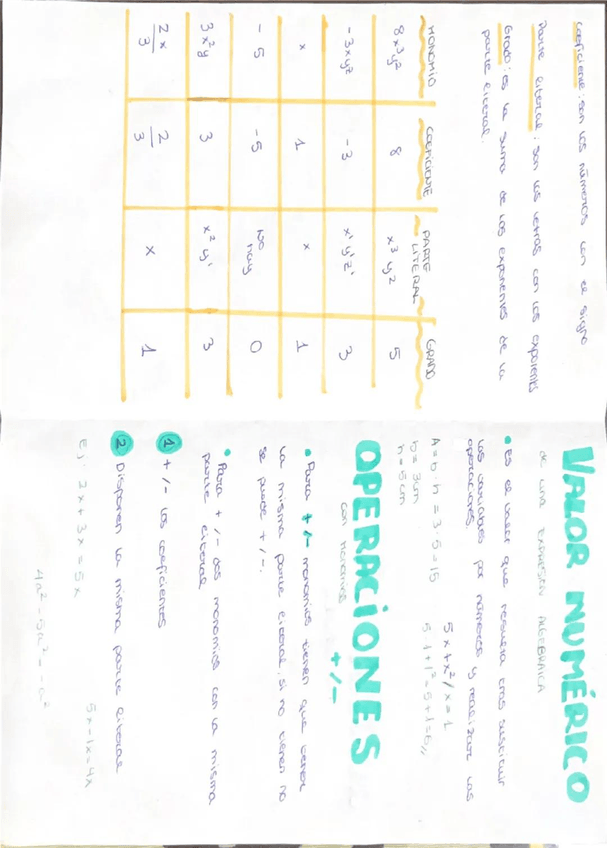 coeficiente: son los números con el signo
Parte literal: son las letras con los exponentes
Grado: es la suma de los exponentes de la
parte literal.
MONOMIO COEFICIENTE PARTE LITERAL GRADO
8x³y² 8 x³y² 5
-3xyz -3 x¹y¹z¹ 3
x 1 x 1
-5 -5 no hay 0
3x²y 3 x²y¹ 3
2x/3 2/3 x 1
VALOR NUMÉRICO
de una EXPRESIÓN ALGEBRAICA
• Es el valor que resulta tras sustituir
las variables por números y realizar las
operaciones.
5x+x²/x=1
A=b·h=3·5=15
5·1+1²=5+1=6//
b=3cm
h=5cm
OPERACIONES +/-
con monomios
• Para +/- monomios tienen que tener
la misma parte literal, si no tienen no
se puede +/-.
• Para +/- dos monomios con la misma
parte literal
1 +/- los coeficientes
2 Disponen la misma parte literal
Ej: 2x+3x=5x 5x-1x=4x
4a²-5a²=-a²